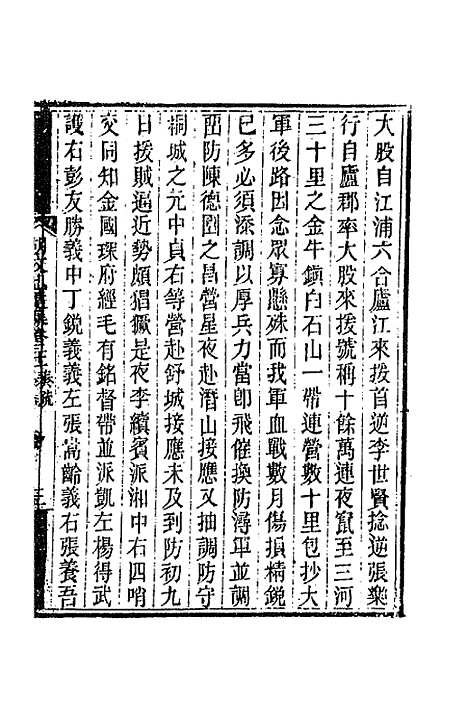 大股自江浦六合廬江來援首逆李世賢捻逆張樂
行自廬郡率大股來援號稱十餘萬連夜竄至三河
三十里之金牛鎮白石山一帶連營數十里包抄大
軍後路因念眾寡懸殊而我軍血戰數月傷損精銳
已多必須添調以厚兵力當卽飛催換防潯軍並調
留防陳德園之昌營星夜赴潛山接應又抽調防守
桐城之元中貞右等營赴舒城接應未及到防初九
日援賊逼近勢頗猖獗是夜李續賓派湘中右四哨
交同知金國琛府經毛有銘督帶並派凱左楊得武
護右彭友勝義中丁銳義義左張嵩齡義右張養吾